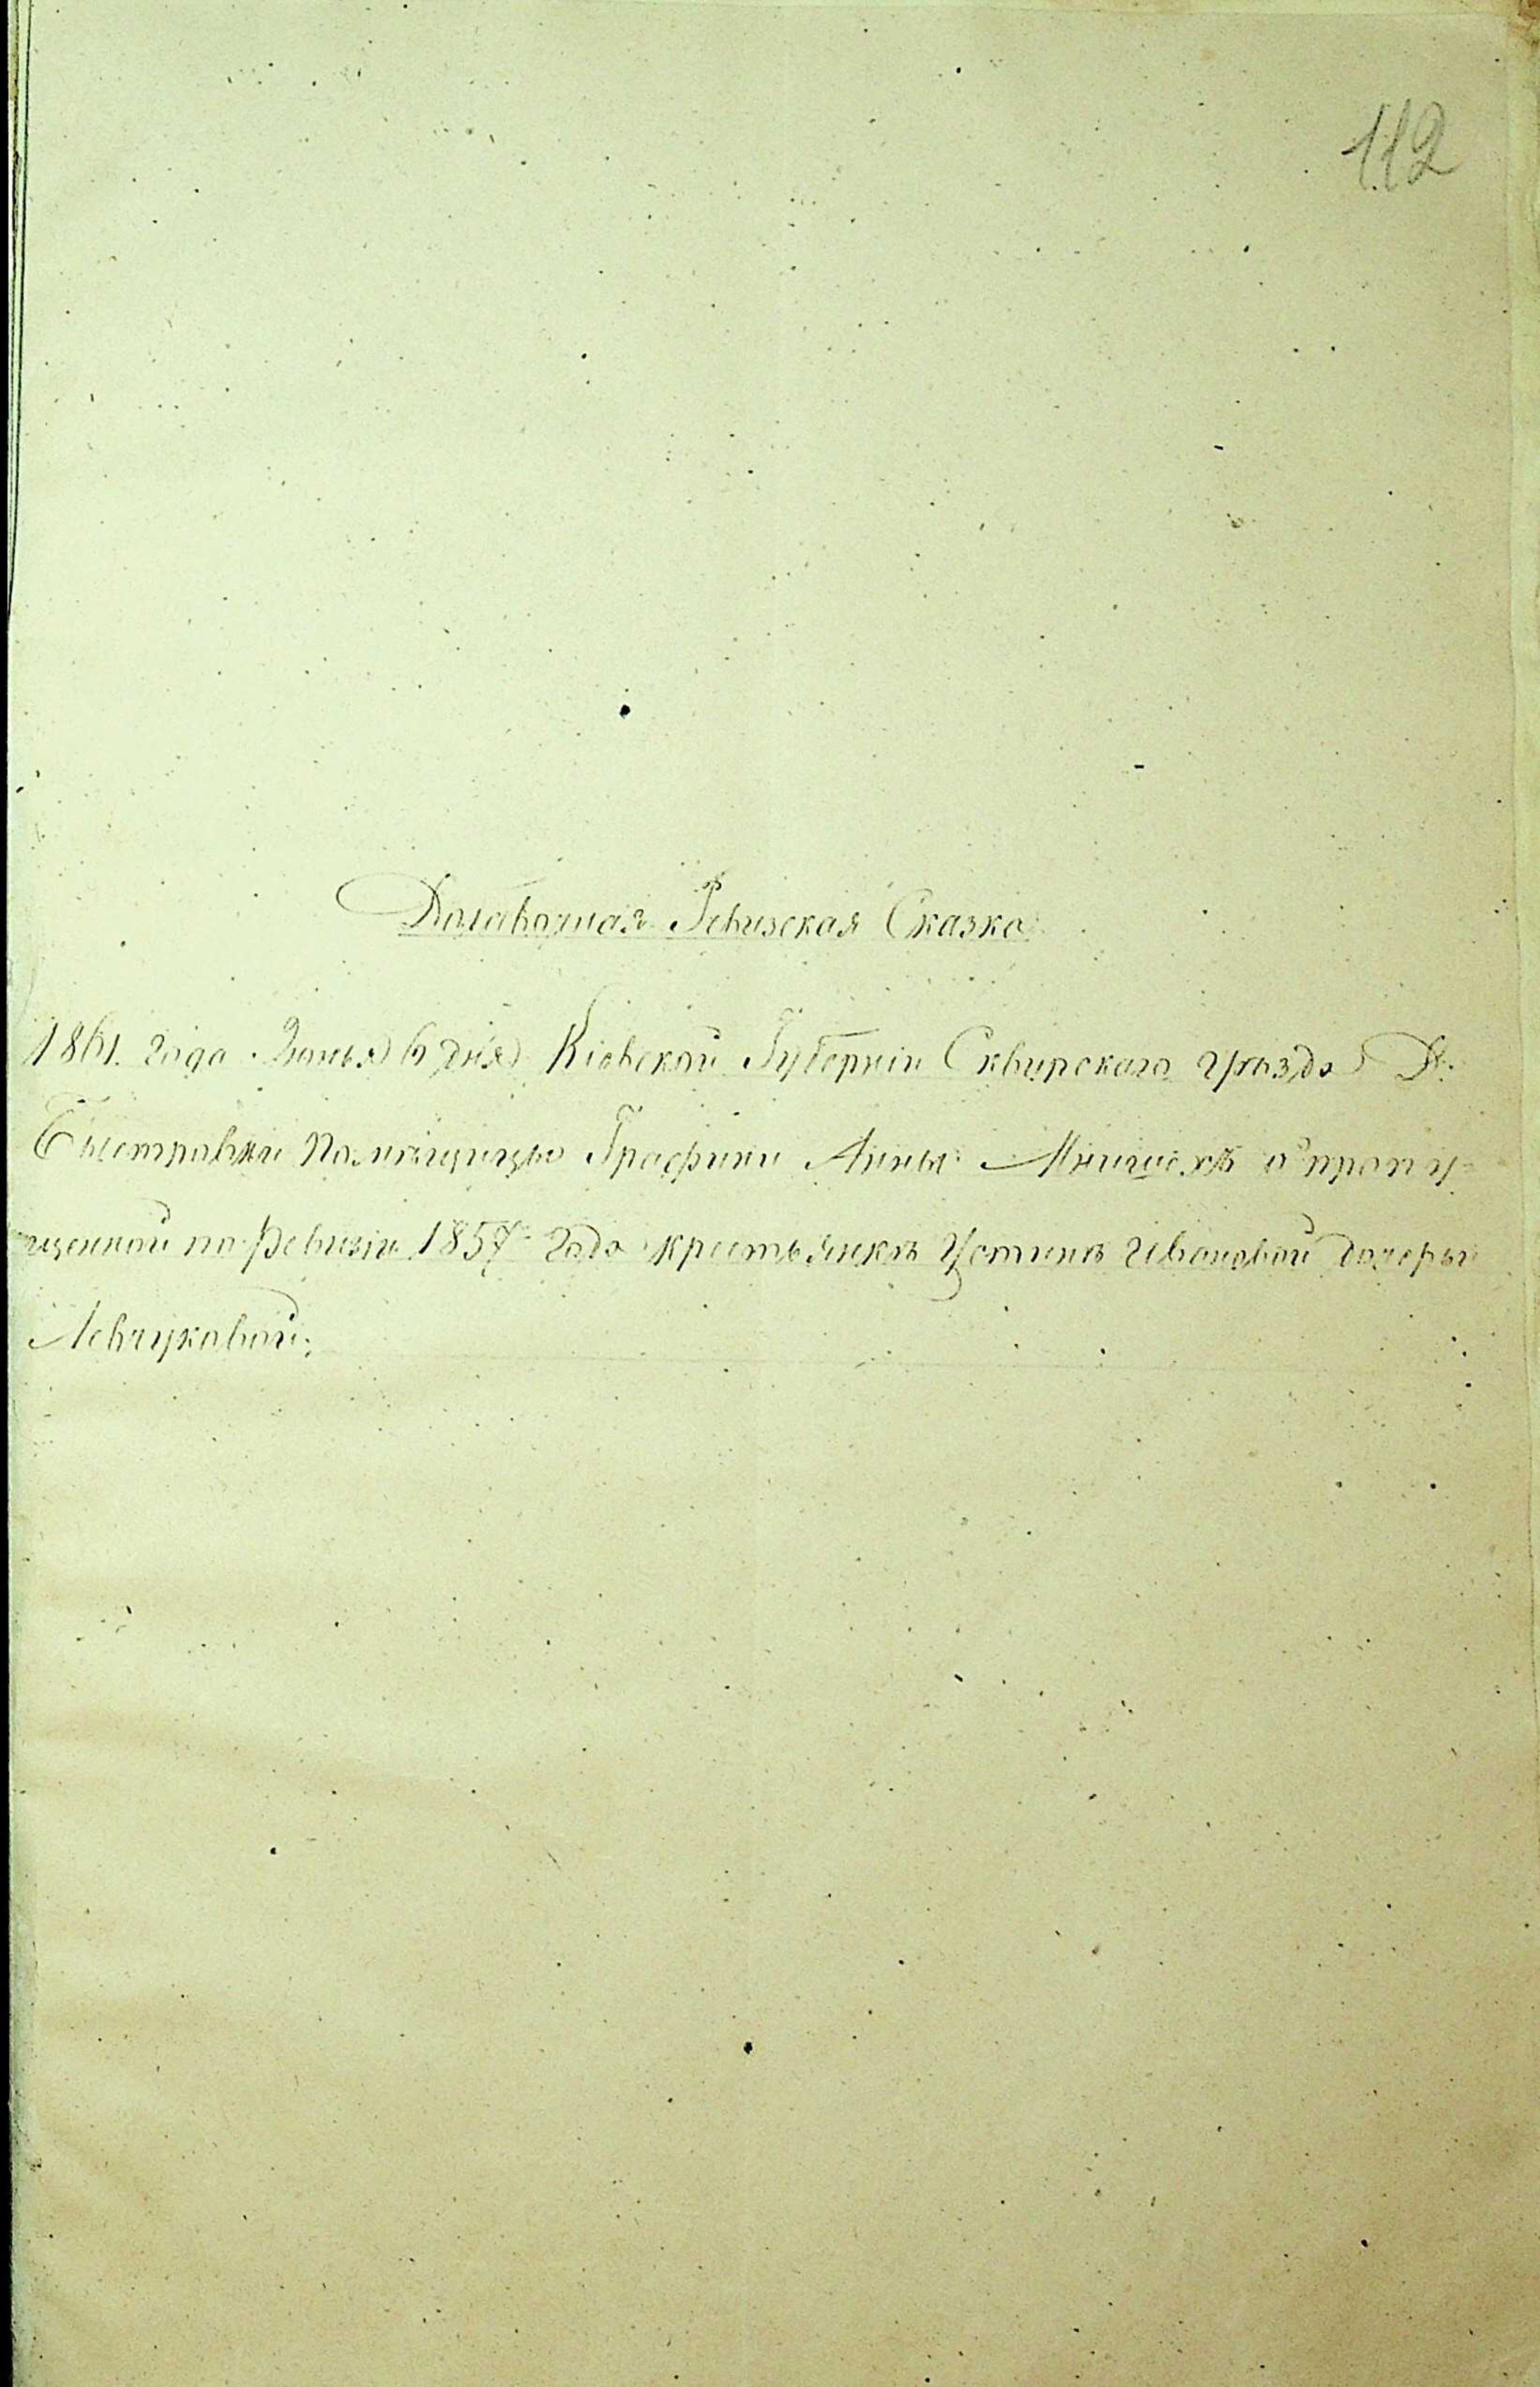 112
Добавочная Ревизская Сказка
1861. года Іюнья 6 дня Кіевской Губерніи Сквирскаго уѣзда Д.
Быстравки Помѣщицы Графини Анны Мнишехъ о пропу-
щенной по Ревизіи 1857 года крестьянкѣ Устинѣ Ивановой дочеры
Левчуковой.